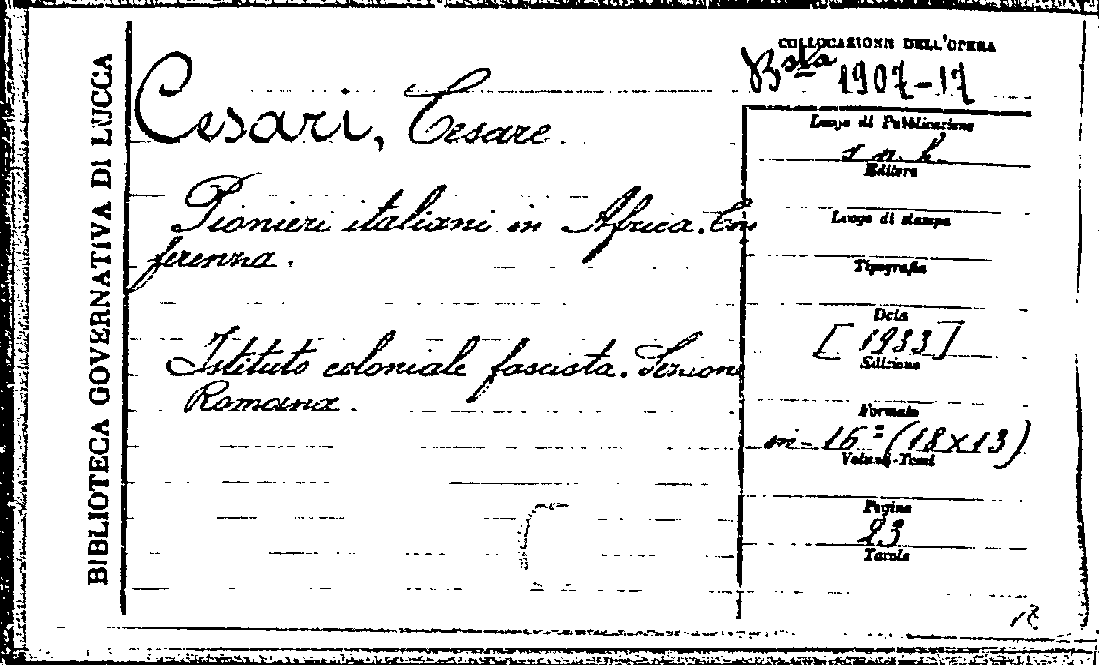 BIBLIOTECA GOVERNATIVA DI LUCCA
COLLOCAZIONE DELL'OPERA
Bsta 1907-17
Cesari, Cesare.
Pionieri italiani in Africa. Con
ferenza.
Istituto coloniale fascista. Sezione
Romana.
Luogo di Pubblicazione
s. n. t.
Editore
Luogo di stampa
Tipografia
Data
[1933]
Edizione
Formato
in-16° (18x13)
Volumi-Tomi
Pagine
23
Tavole